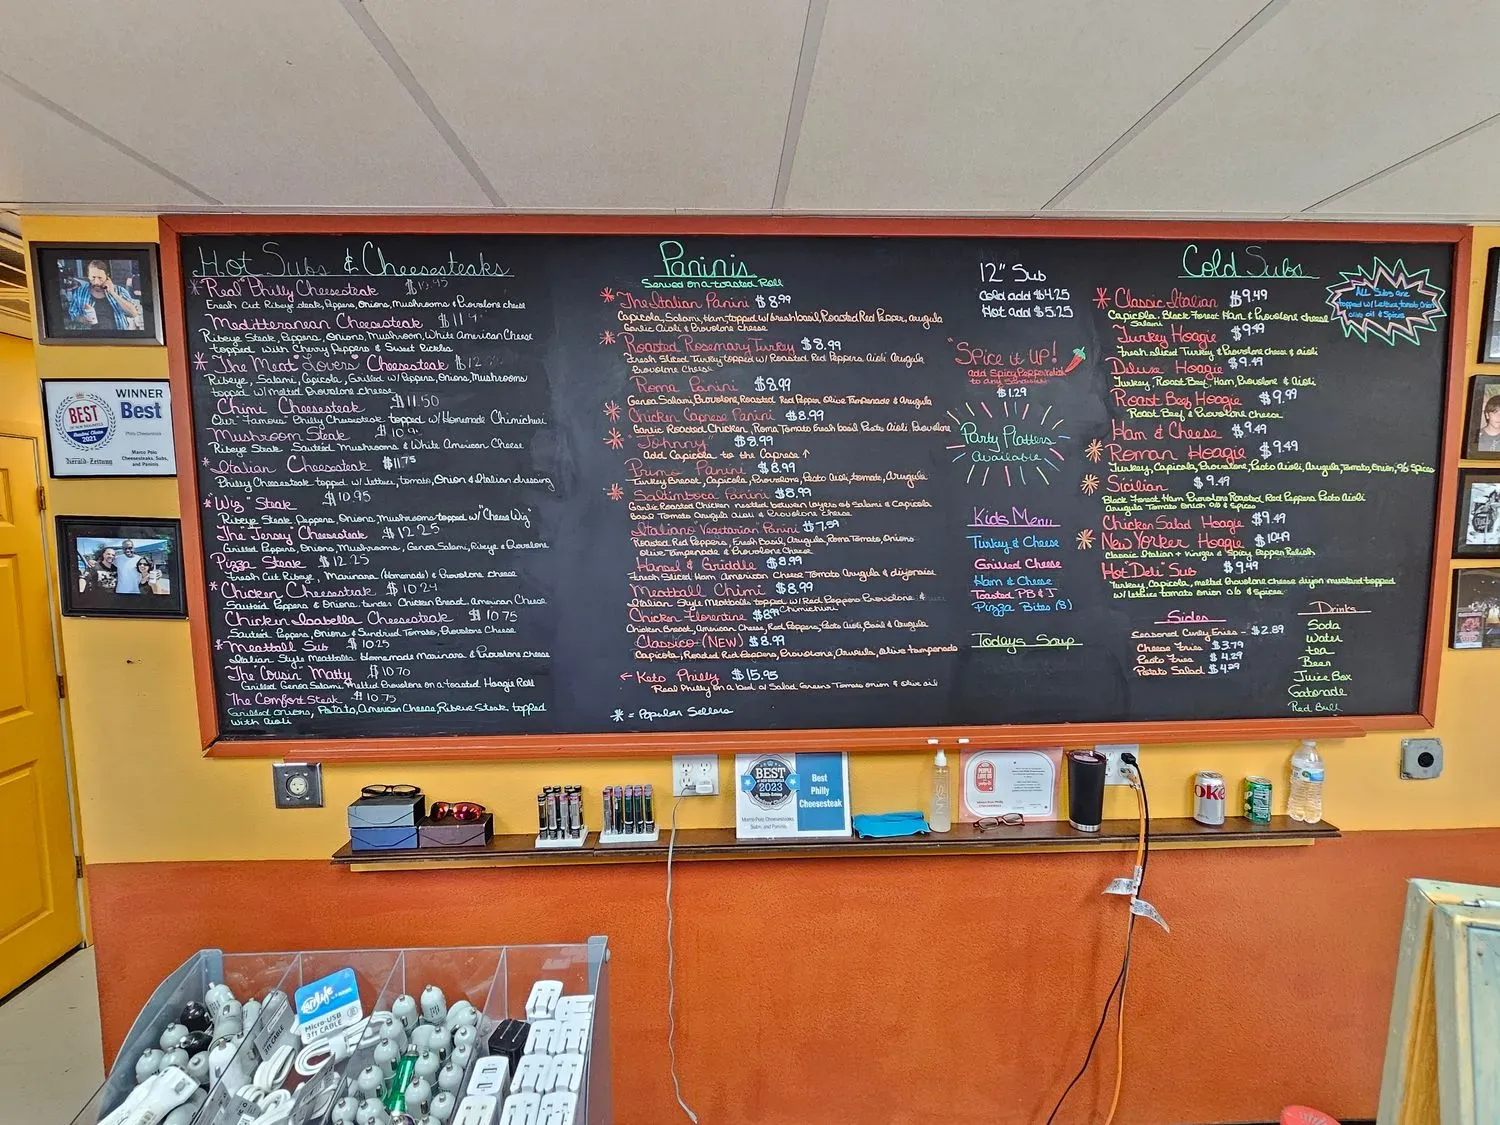 Hot Subs & Cheesesteaks
*"Real" Philly Cheesesteak
Fresh Cut Ribeye steak, Peppers, Onions, Mushrooms & Provolone cheese
Mediterranean Cheesesteak
Ribeye Steak, Peppers, Onions, Mushroom, White American Cheese
topped with Cherry Peppers & Sweet Pickles
*The Meat "Lovers" Cheesesteak
Ribeye, Salami, Capicola, Grilled w/ Peppers, Onions, Mushrooms
topped w/ melted Provolone cheese
Chimi Cheesesteak $11.50
Our "Famous" Philly Cheesesteak topped w/ Homemade Chimichuri
Mushroom Steak
Ribeye Steak Sautéed Mushrooms & White American Cheese
*Italian Cheesesteak $11.75
Philly Cheesesteak topped w/ lettuce, tomato, Onion & Italian dressing
*"Wiz" Steak $10.95
Ribeye Steak Peppers, Onions, Mushrooms topped w/ "Cheese Wiz"
The "Jersey" Cheesesteak $12.25
Grilled Peppers, Onions, Mushrooms, Genoa Salami, Ribeye & Provolone
Pizza Steak $12.25
Fresh Cut Ribeye, Marinara (Homemade) & Provolone cheese
*Chicken Cheesesteak $10.24
Sauteed Peppers & Onions tender Chicken Breast, American Cheese
Chicken Isabella Cheesesteak $10.75
Sauteed Peppers, Onions & Sundried Tomato, Provolone Cheese
*Meatball Sub $10.25
Italian Style Meatballs Homemade Marinara & Provolone cheese
The Cousin Matty $10.70
Grilled Genoa Salami, Melted Provolone on a toasted Hoagie Roll
The Comfort Steak $10.75
Grilled Onions, Potato, American Cheese, Ribeye Steak topped
with Aioli
Paninis
Served on a toasted Roll
*The Italian Panini $8.99
Capicola, Salami, Ham, topped w/ fresh basil, Roasted Red Pepper, arugula
Garlic Aioli & Provolone cheese
*Roasted Rosemary Turkey $8.99
Fresh Sliced Turkey topped w/ Roasted Red Peppers Aioli Arugula
Provolone Cheese
Roma Panini $8.99
Genoa Salami, Provolone, Roasted Red Pepper Olive Tampenade & Arugula
*Chicken Caprese Panini $8.99
Garlic Roasted Chicken, Roma Tomato Fresh basil Pesto Aioli Provolone
*"Johnny" $8.99
Add Capicola to the Caprese ↑
Primo Panini $8.99
Turkey Breast, Capicola, Provolone, Pesto Aioli, tomato, Arugula
*Saltimboca Panini $8.99
Garlic Roasted Chicken nestled between layers of Salami & Capicola
Basil Tomato Arugula aioli & Provolone cheese
Italiano "Vegetarian" Panini $7.59
Roasted Red Peppers, Fresh Basil, Arugula, Roma Tomato, Onions
Olive Tampenade & Provolone Cheese
Hansel & Griddle $8.99
Fresh Sliced Ham American Cheese Tomato Arugula & dijonaise
Meatball Chimi $8.99
Italian Style Meatballs topped w/ Red Peppers Provolone &
Chimichuri
Chicken Florentine $8.99
Chicken Breast, American Cheese, Red Peppers, Pesto Aioli, Basil & Arugula
Classico (NEW) $8.99
Capicola, Roasted Red Peppers, Provolone, Arugula, Olive tampenade
← Keto Philly $15.95
Real Philly on a bed of Salad Greens Tomato onion & olive oil
* = Popular Sellers
12" Sub
Cold add $4.25
Hot add $5.25
"Spice it UP!
add Spicy Pepper relish
to any Sandwich
$1.29
Party Platters
Available
Kids Menu
Turkey & Cheese
Grilled Cheese
Ham & Cheese
Toasted PB & J
Pizza Bites (8)
Todays Soup
Cold Subs
*Classic Italian $9.49
Capicola, Black Forest Ham & Provolone cheese
Salami
Turkey Hoagie $9.49
Fresh sliced Turkey & Provolone cheese & aioli
Deluxe Hoagie $9.49
Turkey, Roast Beef, Ham, Provolone & Aioli
Roast Beef Hoagie $9.99
Roast Beef & Provolone Cheese
Ham & Cheese $9.49
*Roman Hoagie $9.49
Turkey, Capicola, Provolone, Pesto Aioli, Arugula, Tomato, Onion, Spices
*Sicilian $9.49
Black Forest Ham Provolone Roasted Red Peppers Pesto Aioli
Arugula Tomato Onion o/b & spices
Chicken Salad Hoagie $9.49
*New Yorker Hoagie $10.49
Classic Italian + Vinegar & Spicy Pepper Relish
Hot "Deli" Sub $9.49
Turkey, Capicola, melted Provolone cheese dijon mustard topped
w/ lettuce tomato onion o/b & spices
All Subs are
topped w/ Lettuce, tomato, Onion
olive oil & Spices
Sides
Seasoned Curly Fries - $2.89
Cheese Fries $3.79
Pesto Fries $4.29
Potato Salad
Drinks
Soda
Water
tea
Beer
Juice Box
Gatorade
Red Bull
WINNER
Best
BEST
Readers' Choice
2021
Philly Cheesesteak
Marco Polo
Cheesesteaks, Subs,
and Paninis
Herald-Zeitung
BEST
2023
Best
Philly
Cheesesteak
Marco Polo Cheesesteaks,
Subs, and Paninis
PEOPLE
LOVE US
Coke
Micro-USB
3ft CABLE